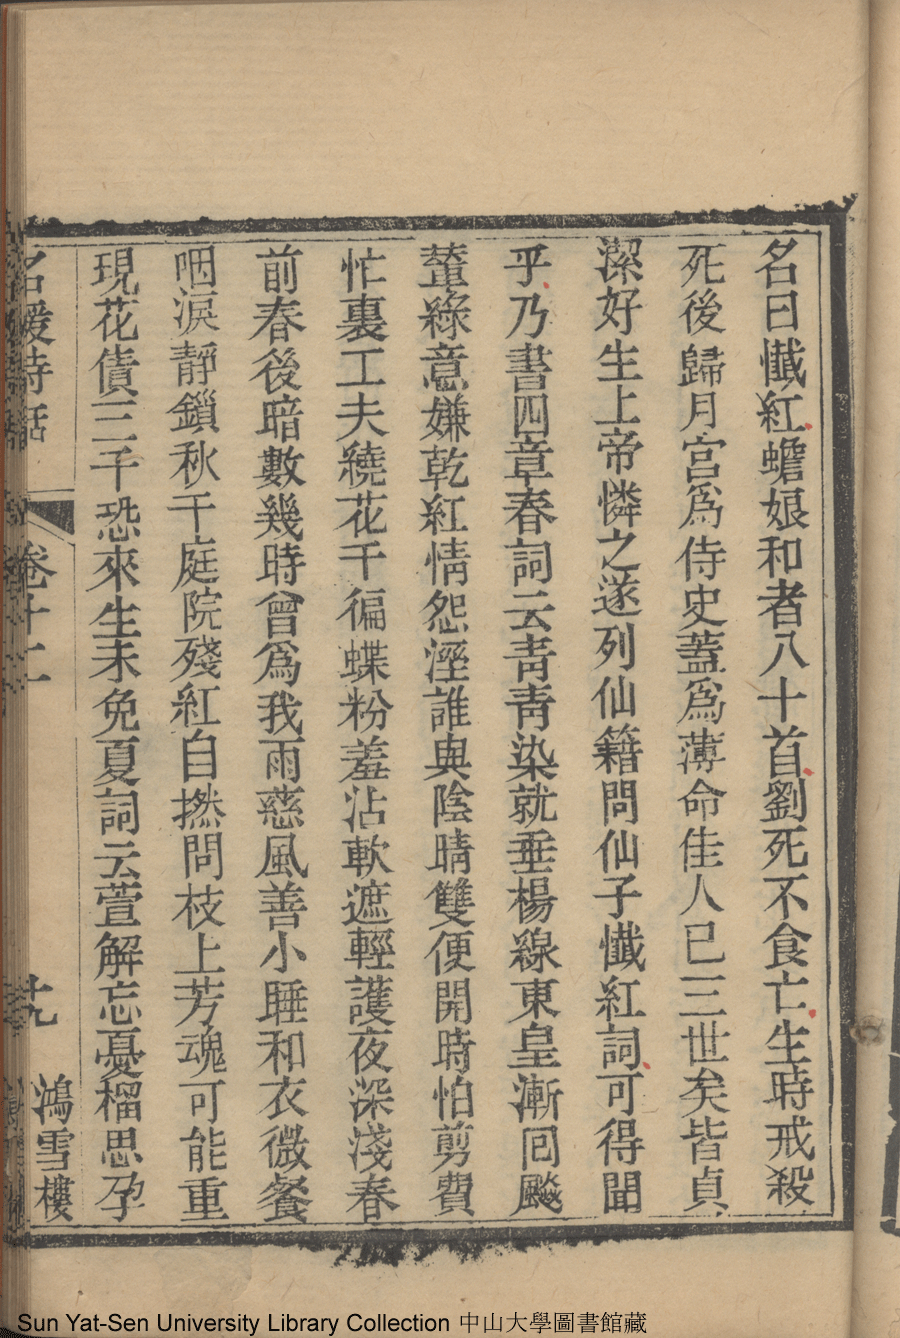 名曰懺紅蟾娘和者八十首劉死不食亡生時戒殺
死後歸月宮爲侍史蓋爲薄命佳人已三世矣皆貞
潔好生上帝憐之遂列仙籍問仙子懺紅詞可得聞
乎乃書四章春詞云靑靑染就垂楊線東皇漸回飈
蕫綠意嫌乾紅情怨溼誰與陰晴雙便開時怕剪費
忙裏工夫繞花千徧蝶粉羞沾軟遮輕護夜深淺春
前春後暗數幾時曾爲我雨慈風善小睡和衣微餐
咽淚靜鎖秋千庭院殘紅自撚問枝上芳魂可能重
現花債三千恐來生未免夏詞云萱解忘憂榴思孕
名媛詩話
卷十二
十九
鴻雪樓
Sun Yat-Sen University Library Collection 中山大學圖書館藏